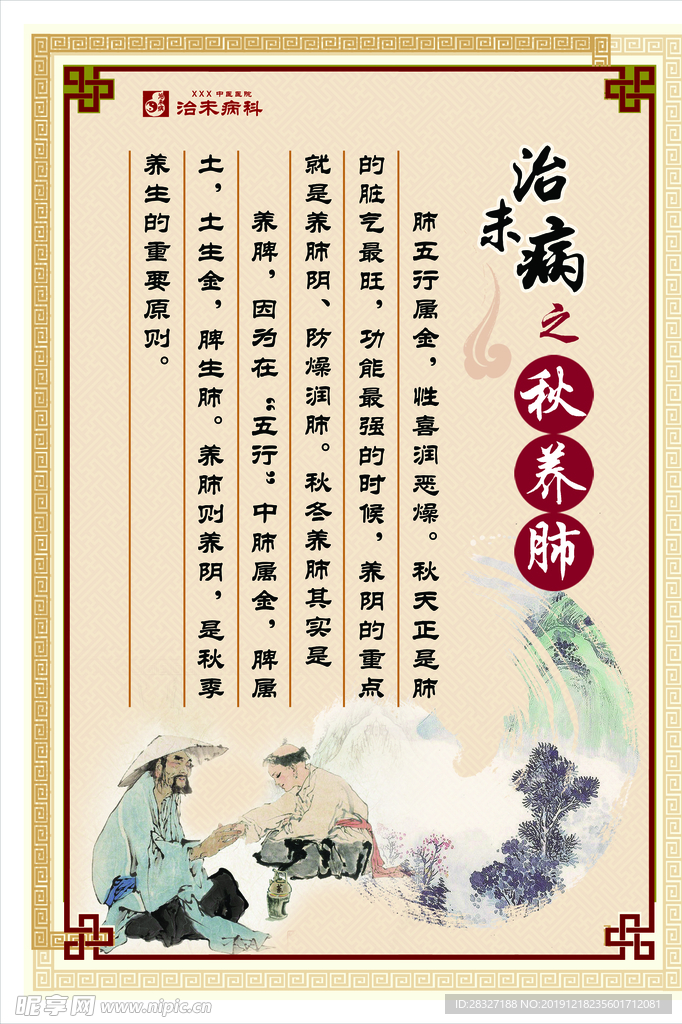 XXX 中医医院
治未病科
治未病
之
秋养肺
肺五行属金，性喜润恶燥。秋天正是肺
的脏气最旺，功能最强的时候，养阴的重点
就是养肺阴、防燥润肺。秋冬养肺其实是
养脾，因为在“五行”中肺属金，脾属
土，土生金，脾生肺。养肺则养阴，是秋季
养生的重要原则。
昵享网 www.nipic.cn
ID:28327188 NO:20191218235601712081